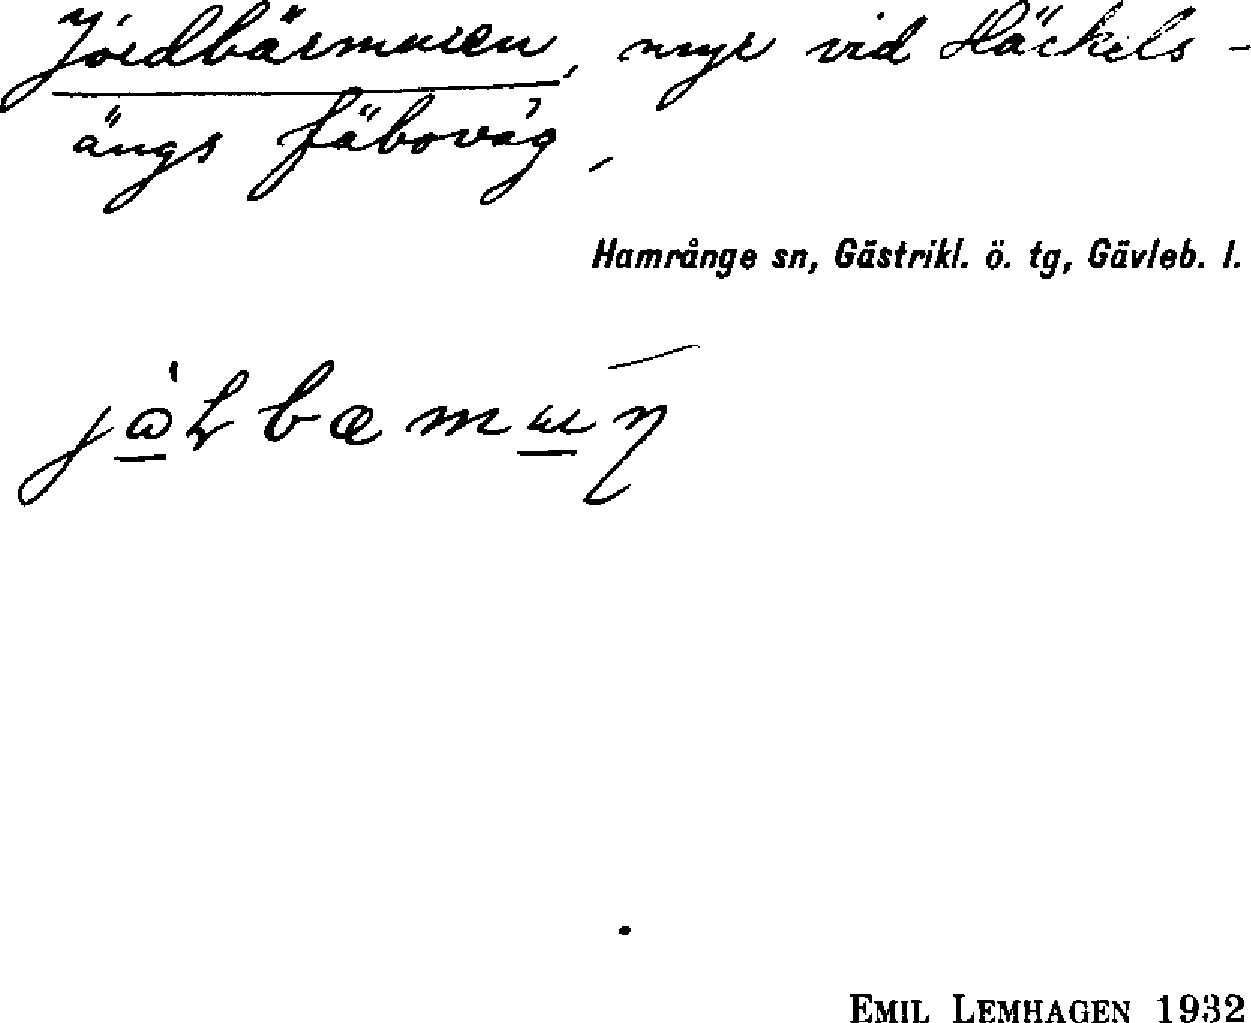 Jordbärmuren, myr vid Häckels-
ängs fäboväg,
Hamrånge sn, Gästrikl. ö. tg, Gävleb. l.
EMIL LEMHAGEN 1932